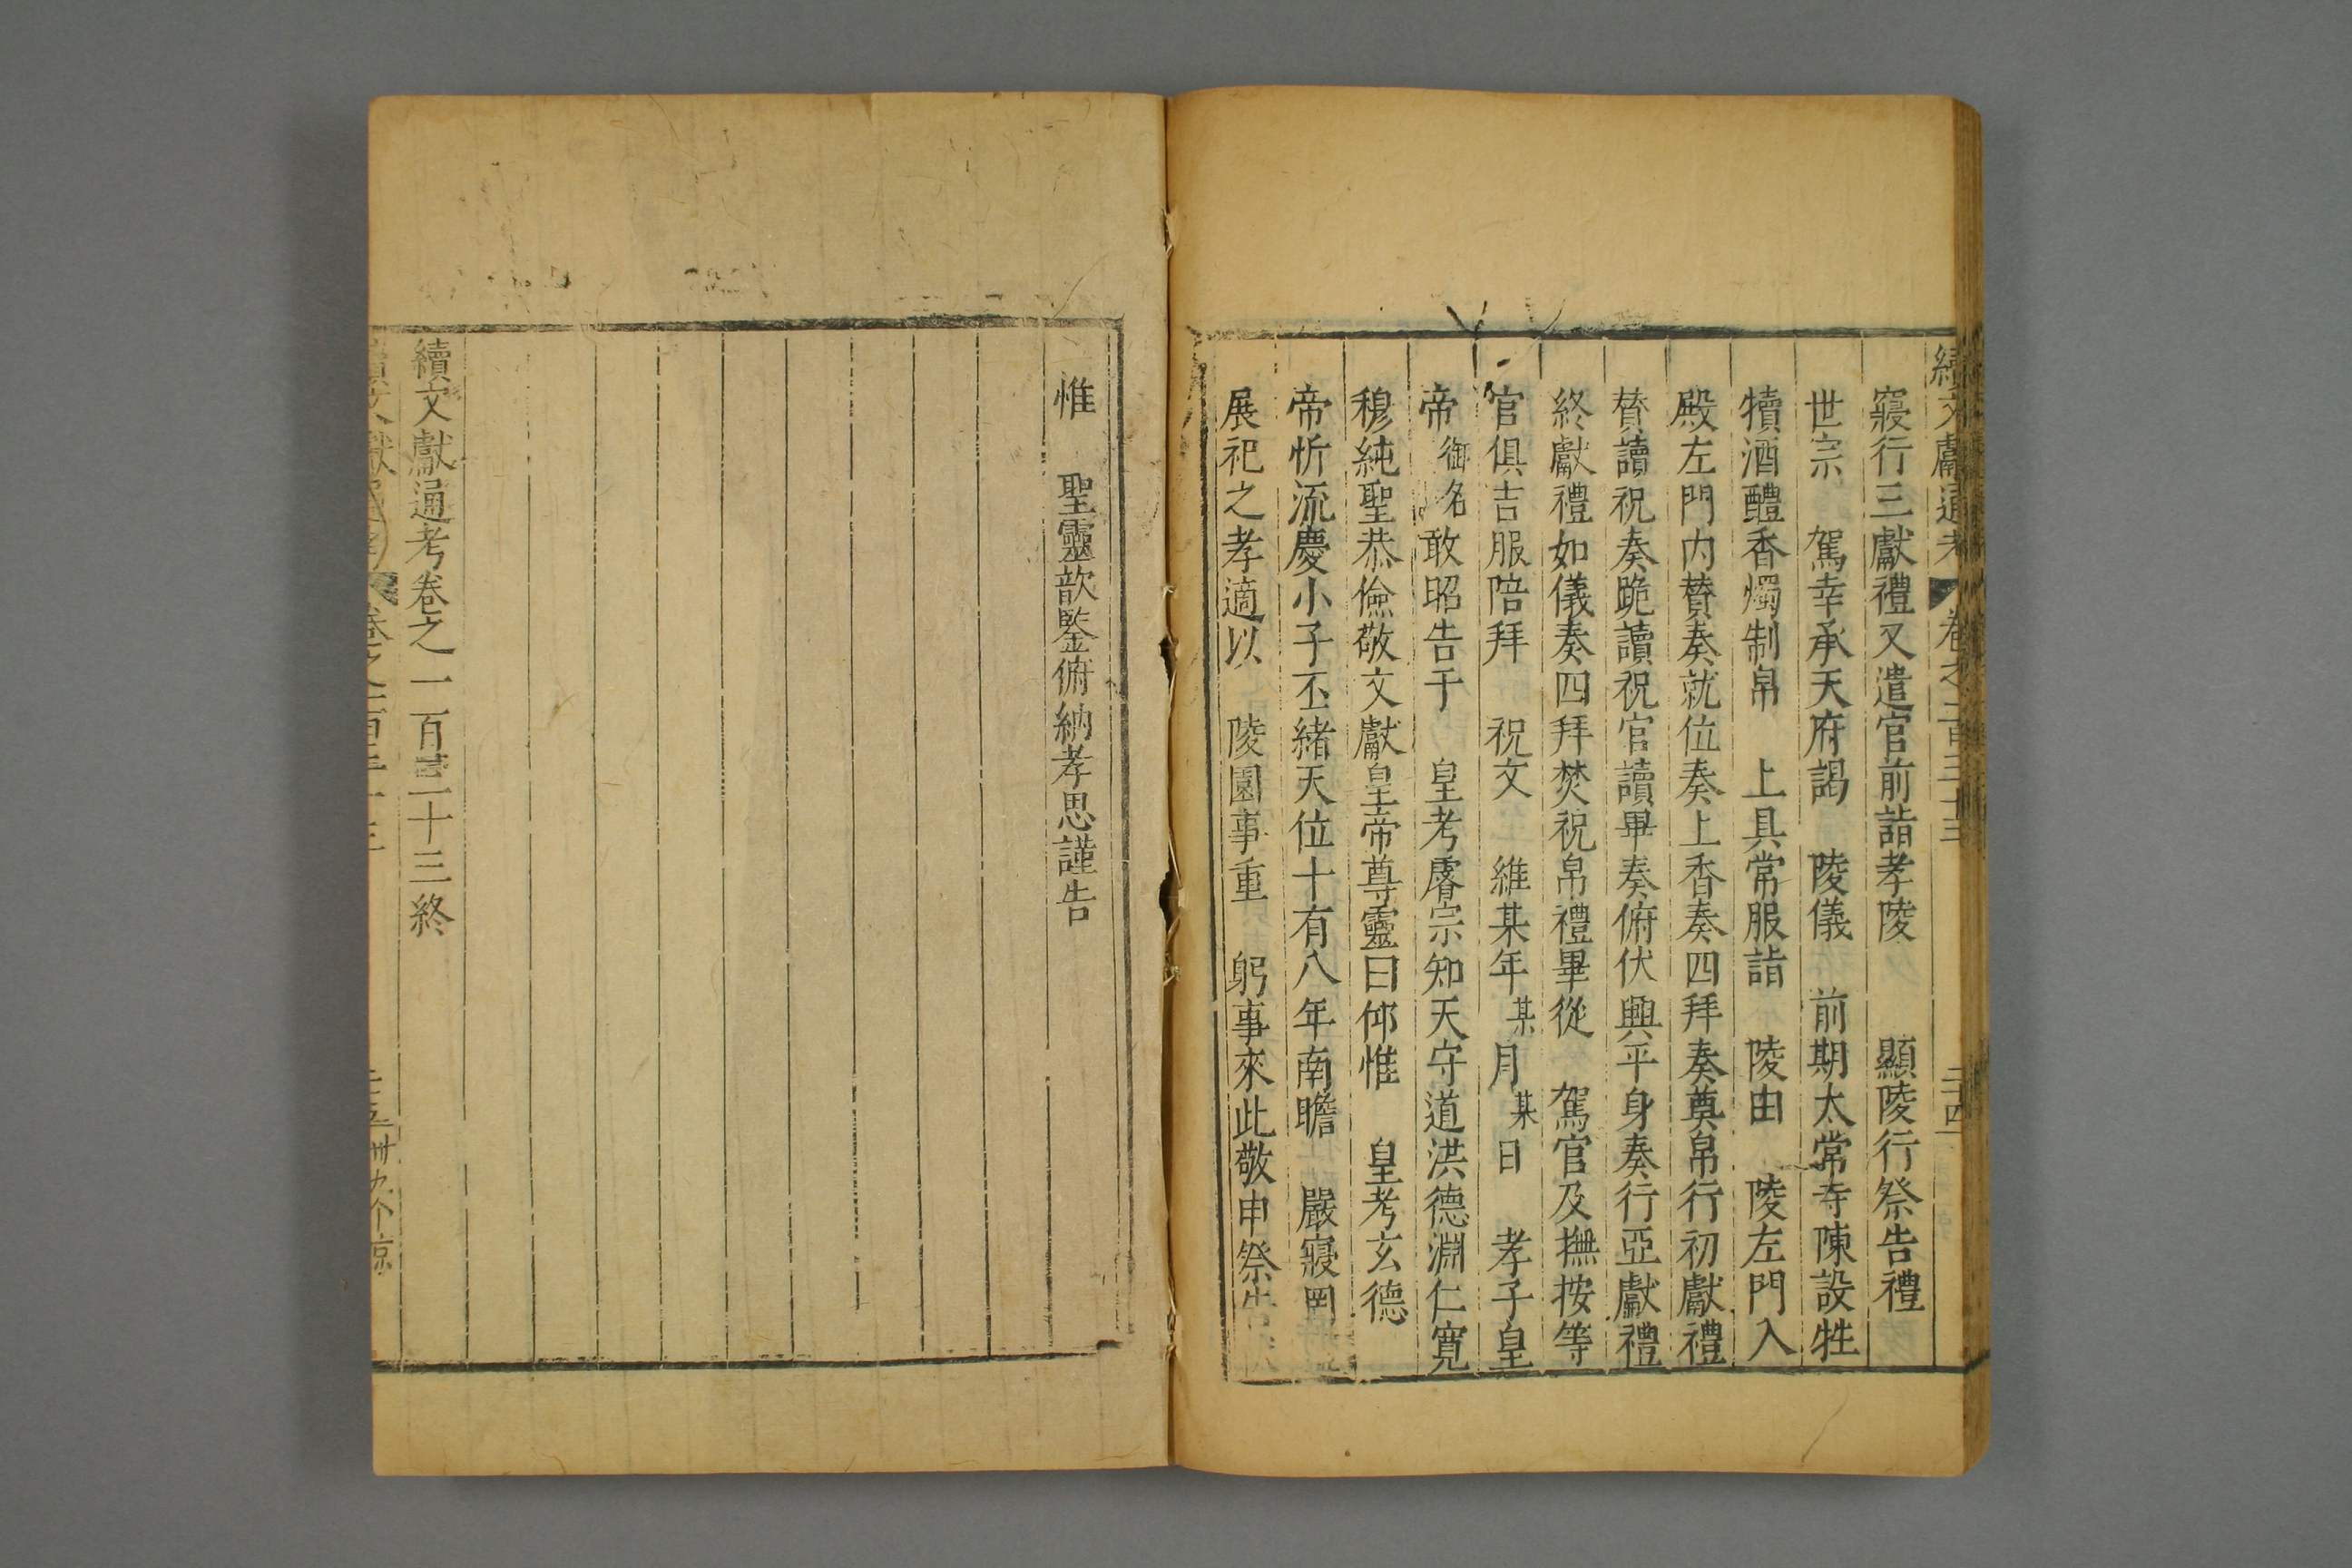 續文獻通考 卷之一百三十三 二十四
寢行三獻禮又遣官前詣孝陵 顯陵行祭告禮
世宗 駕幸承天府謁 陵儀 前期太常寺陳設牲
犢酒醴香燭制帛 上具常服詣 陵由 陵左門入
殿左門内賛奏就位奏上香奏四拜奏奠帛行初獻禮
賛讀祝奏跪讀祝官讀畢奏俯伏興平身奏行亞獻禮
終獻禮如儀奏四拜焚祝帛禮畢從 駕官及撫按等
官俱吉服陪拜 祝文 維某年某月某日 孝子皇
帝御名敢昭告于 皇考睿宗知天守道洪德淵仁寛
穆純聖恭儉敬文獻皇帝尊靈曰仰惟 皇考玄德
帝忻流慶小子丕緒天位十有八年南瞻 嚴寢罔
展祀之孝適以 陵園事重 躬事來此敬申祭告
惟 聖靈歆鑒俯納孝思謹告
續文獻通考卷之一百三十三終